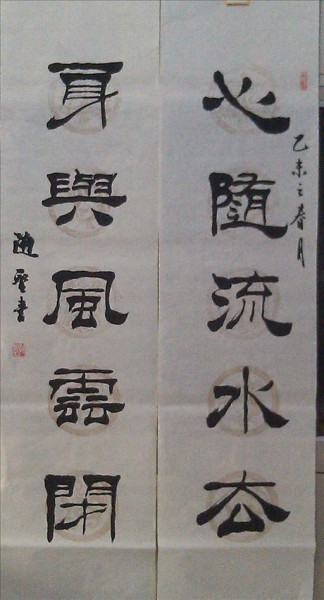 心隨流水去
乙未之春月
身與風雲閑
書